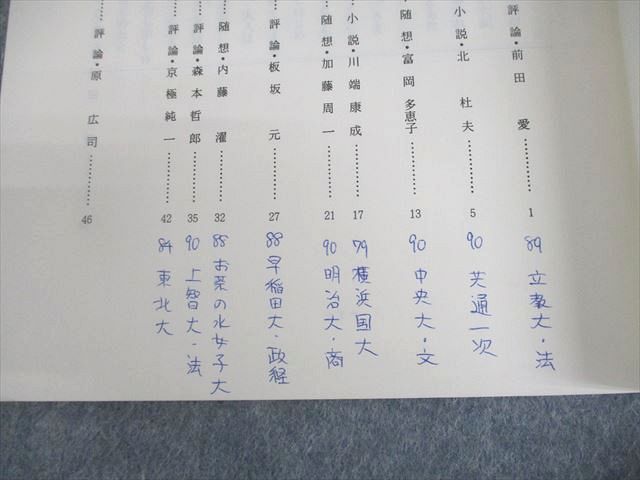 評論・前田 愛…………1
89 立教大・法
小説・北 杜夫…………5
90 共通一次
随想・富岡多恵子…………13
90 中央大・文
小説・川端康成…………17
79 横浜国大
随想・加藤周一…………21
90 明治大・商
評論・板坂 元…………27
88 早稲田大・政経
随想・内藤 濯…………32
88 お茶の水女子大
評論・森本哲郎…………35
90 上智大・法
評論・京極純一…………42
84 東北大
評論・原 広司…………46